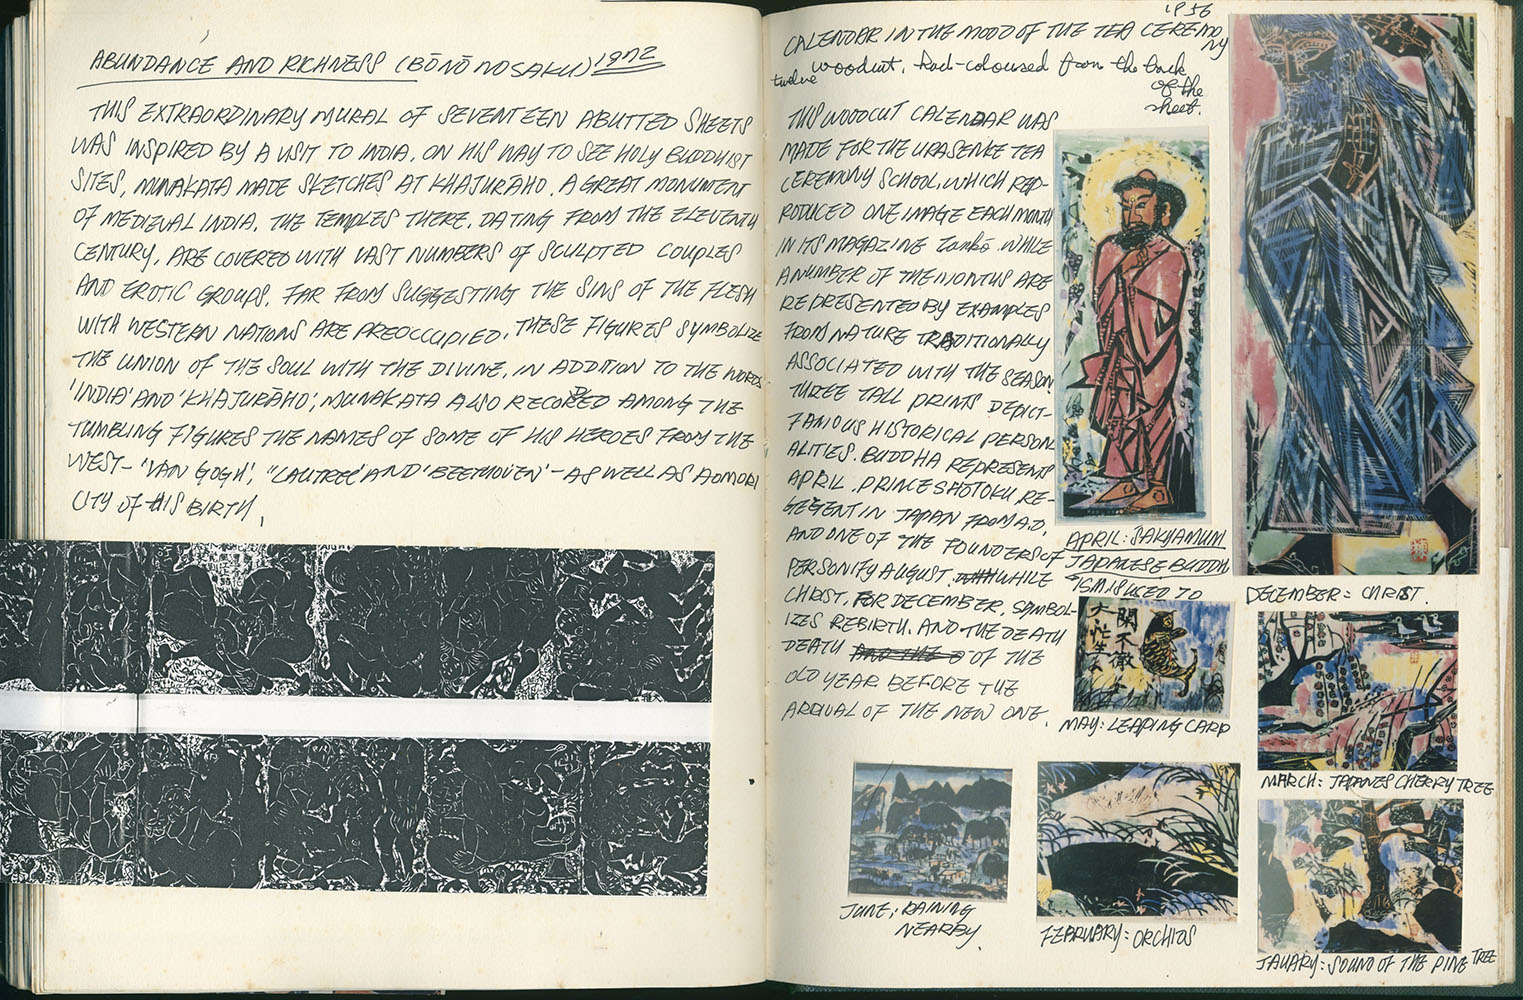 ABUNDANCE AND RICHNESS (BŌNŌ NO SAKU) 1972
THIS EXTRAORDINARY MURAL OF SEVENTEEN ABUTTED SHEETS
WAS INSPIRED BY A VISIT TO INDIA. ON HIS WAY TO SEE HOLY BUDDHIST
SITES, MUNAKATA MADE SKETCHES AT KHAJURĀHO. A GREAT MONUMENT
OF MEDIEVAL INDIA. THE TEMPLES THERE, DATING FROM THE ELEVENTH
CENTURY, ARE COVERED WITH VAST NUMBERS OF SCULPTED COUPLES
AND EROTIC GROUPS. FAR FROM SUGGESTING THE SINS OF THE FLESH
WITH WESTEAN NATIONS ARE PREOCCUPIED. THESE FIGURES SYMBOLIZE
THE UNION OF THE SOUL WITH THE DIVINE. IN ADDITION TO THE WORDS
'INDIA' AND 'KHAJURĀHO', MUNAKATA ALSO RECORDED AMONG THE
TUMBLING FIGURES THE NAMES OF SOME OF HIS HEROES FROM THE
WEST- 'VAN GOGH', "LAUTREC' AND 'BEETHOVEN' - AS WELL AS AOMORI
CITY OF HIS BIRTH.
1956
CALENDAR IN THE MOOD OF THE TEA CEREMONY
twelve woodcut, back-coloured from the back
of the
sheet.
THIS WOODCUT CALENDAR WAS
MADE FOR THE URASENKE TEA
CEREMONY SCHOOL, WHICH REP-
RODUCED ONE IMAGE EACH MONTH
IN ITS MAGAZINE Tankō. WHILE
A NUMBER OF THE MONTHS ARE
REPRESENTED BY EXAMPLES
FROM NATURE TRADITIONALLY
ASSOCIATED WITH THE SEASON.
THREE TALL PRINTS DEPICT-
FAMOUS HISTORICAL PERSON
ALITIES. BUDDHA REPRESENTS
APRIL. PRINCE SHŌTOKU RE-
GEGENT IN JAPAN FROM A.D.
AND ONE OF THE FOUNDERS OF
PERSONIFY AUGUST. WHILE
CHRIST, FOR DECEMBER, SYMBOL-
IZES REBIRTH. AND THE DEATH
DEATH OF THE
OLD YEAR BEFORE THE
ARRIVAL OF THE NEW ONE.
APRIL: ŚAKYAMUNI
JAPANESE BUDDH
ISM IS USED TO
DECEMBER: CHRIST.
關不徹
大忙生
MAY: LEAPING CARP
MARCH: JAPANES CHERRY TREE
JUNE: RAINING
NEARBY.
FEBRUARY: ORCHIDS
JAUARY: SOUND OF THE PINE TREE